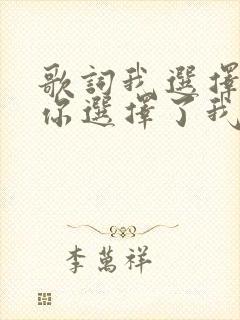 歌詞我選擇
你選擇了我
李萬祥